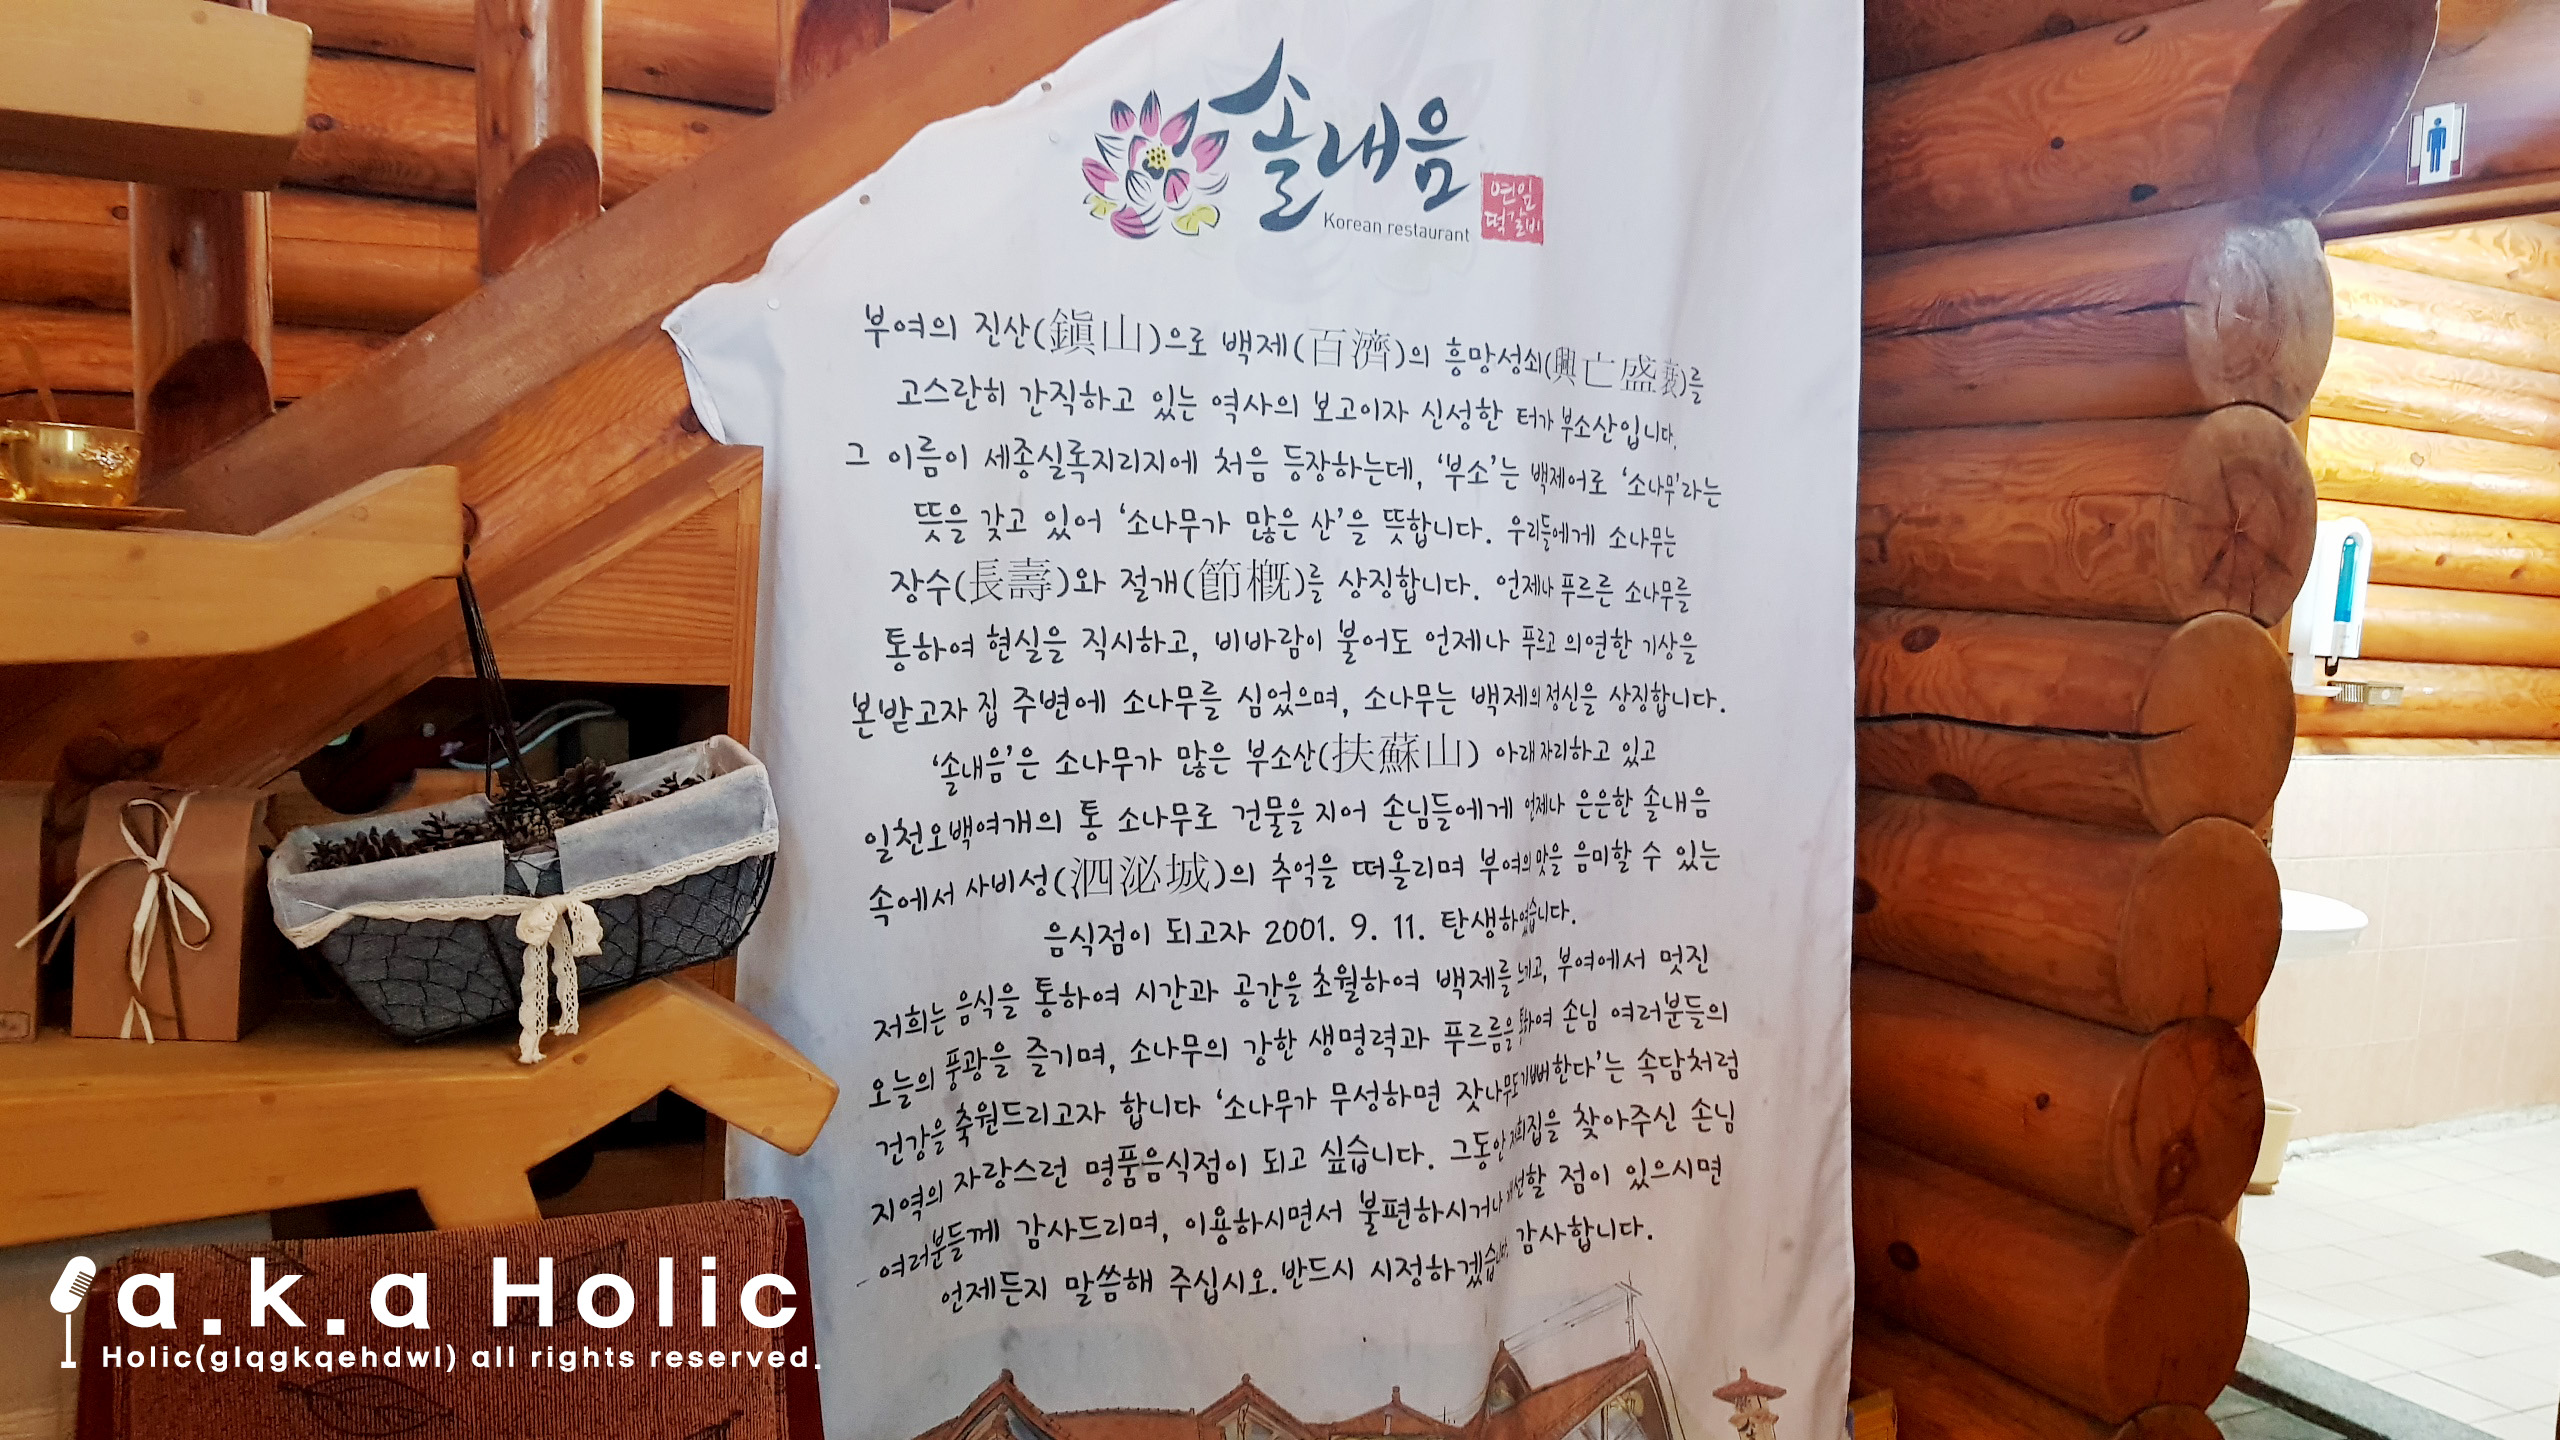 솔내음
Korean restaurant
연잎
떡갈비
부여의 진산(鎭山)으로 백제(百濟)의 흥망성쇠(興亡盛衰)를
고스란히 간직하고 있는 역사의 보고이자 신성한 터가 부소산입니다.
그 이름이 세종실록지리지에 처음 등장하는데, ‘부소’는 백제어로 ‘소나무’라는
뜻을 갖고 있어 ‘소나무가 많은 산’을 뜻합니다. 우리들에게 소나무는
장수(長壽)와 절개(節槪)를 상징합니다. 언제나 푸르른 소나무를
통하여 현실을 직시하고, 비바람이 불어도 언제나 푸르고 의연한 기상을
본받고자 집 주변에 소나무를 심었으며, 소나무는 백제의 정신을 상징합니다.
‘솔내음’은 소나무가 많은 부소산(扶蘇山) 아래 자리하고 있고
일천오백여개의 통 소나무로 건물을 지어 손님들에게 언제나 은은한 솔내음
속에서 사비성(泗泌城)의 추억을 떠올리며 부여의 맛을 음미할 수 있는
음식점이 되고자 2001. 9. 11. 탄생하였습니다.
저희는 음식을 통하여 시간과 공간을 초월하여 백제를 느끼고, 부여에서 멋진
오늘의 풍광을 즐기며, 소나무의 강한 생명력과 푸르름을 통하여 손님 여러분들의
건강을 축원드리고자 합니다 ‘소나무가 무성하면 잣나무도 기뻐한다’는 속담처럼
지역의 자랑스런 명품음식점이 되고 싶습니다. 그동안 저희집을 찾아주신 손님
여러분들께 감사드리며, 이용하시면서 불편하시거나 개선할 점이 있으시면
언제든지 말씀해 주십시오. 반드시 시정하겠습니다. 감사합니다.
a.k.a Holic
Holic(glqgkqehdwl) all rights reserved.